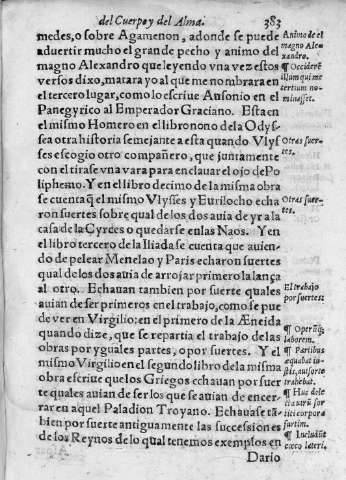 del Cuerpo y del Alma. 383
medes, o sobre Agamenon, adonde se puede
aduertir mucho el gran de pecho y animo del
magno Alexandro que leyendo vna vez estos
versos dixo, matara yo al que me nombrara en
el tercero lugar, como lo escriue Ausonio en el
Panegyrico al Emperador Graciano. Esta en
el mismo Homero en el libro nono de la Odys-
sea otra historia semejante a esta quando Vlys
ses escogio otro compañero, que juntamente
con el tirasse vna vara para enclauar el ojo de Po
liphemo. Y en el libro decimo de la misma obra
se cuenta q̃ el mismo Vlysses y Euriloco echa
ron suertes sobre qual de los dos auia de yr a la
casa de la Cyrces o quedarse en las Naos. Y en
el libro tercero de la Iliada se cuenta que auien-
do de pelear Menelao y Paris echaron suertes
qual de los dos auia de arrojar primero la lança
al otro. Echauan tambien por suerte quales
auian de ser primeros en el trabajo, como se pue
de ver en Virgilio: en el primero de la Æneida
quando dize, que se repartia el trabajo de las
obras por yguales partes, o por suertes. Y el
mismo Virgilio en el segundo libro de la misma
obra escriue que los Griegos echauan por suer
te quales auian de ser los que se auian de encer-
rar en aquel Paladion Troyano. Echauase tã
bien por suerte antiguamente las successiones
de los Reynos de lo qual tenemos exemplos en
Dario
Animo de el
magno Ale-
xandro.
¶ Occidere
illum qui me
tertium no-
minasset.
Otras suer-
tes.
Otras suer-
tes.
El trabajo
por suertes:
¶ Operũq;
laborem.
¶ Partibus
æquabat iu-
stis, aut sorte
trahebat.
¶ Huc dele
cta virũ sor
titi corpora
furtim.
¶ Includũt
cæco lateri.